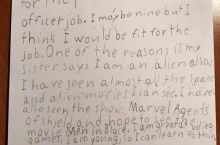 for the
officer job. I may be nine but I
think I would be fit for the
job. One of the reasons is my
sister says I am an alien also
I have seen almost all the space
and alien movies I can see. I have
also seen the show Marvel Agents
of Shield and hope to see the
movie Men in Black. I am great at video
games. I am young, so I can learn to thin